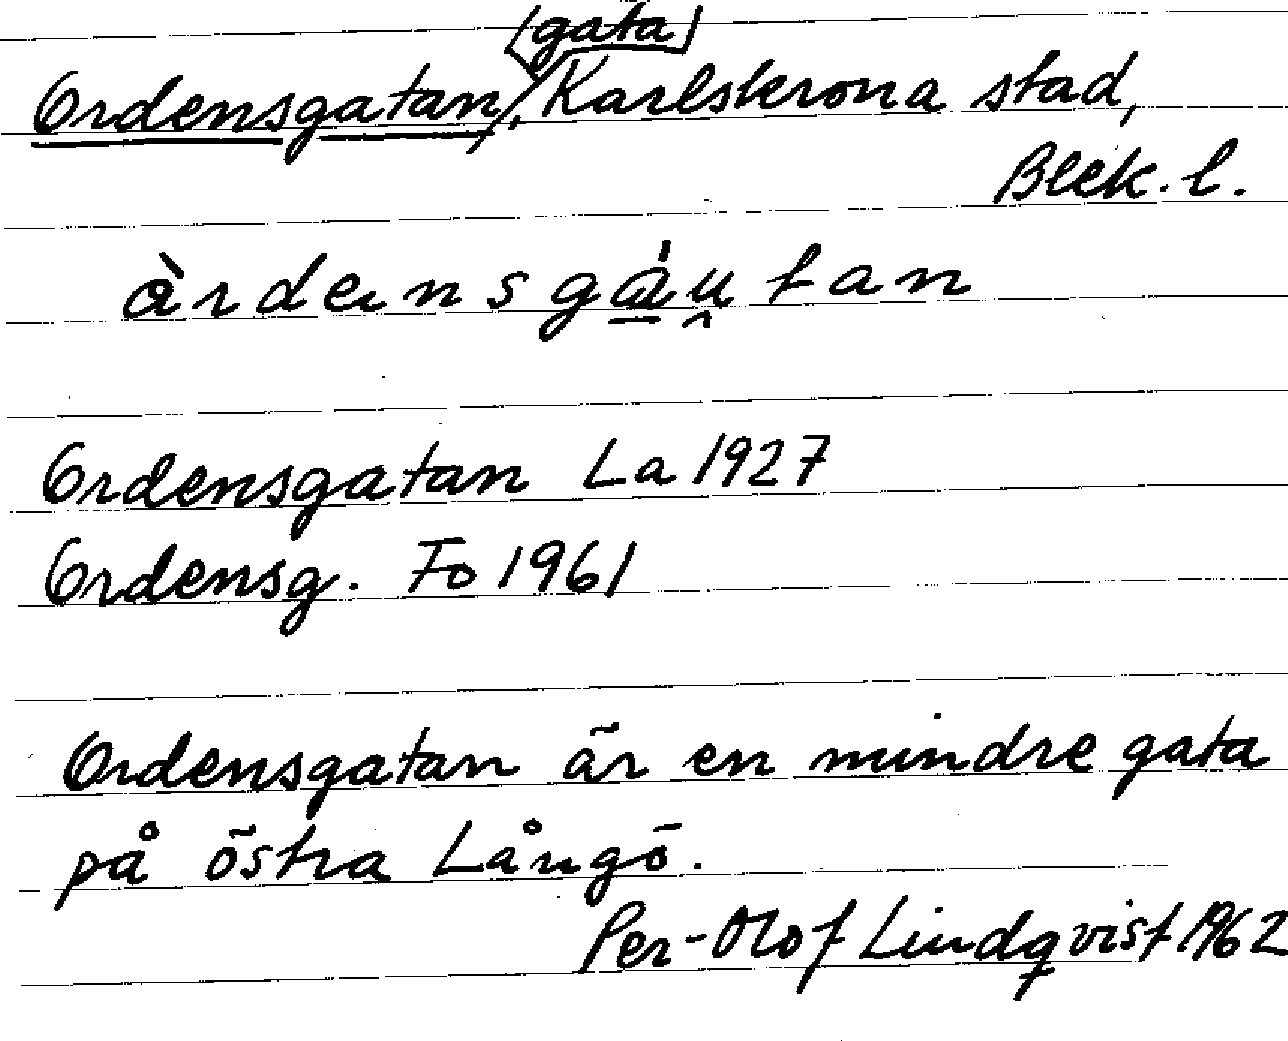 (gata)
Ordensgatan, Karlskrona stad,
Blek. l.
Ordensgatan La 1927
Ordensg. Fo 1961
Ordensgatan är en mindre gata
på östra Långö.
Per-Olof Lindqvist 1962